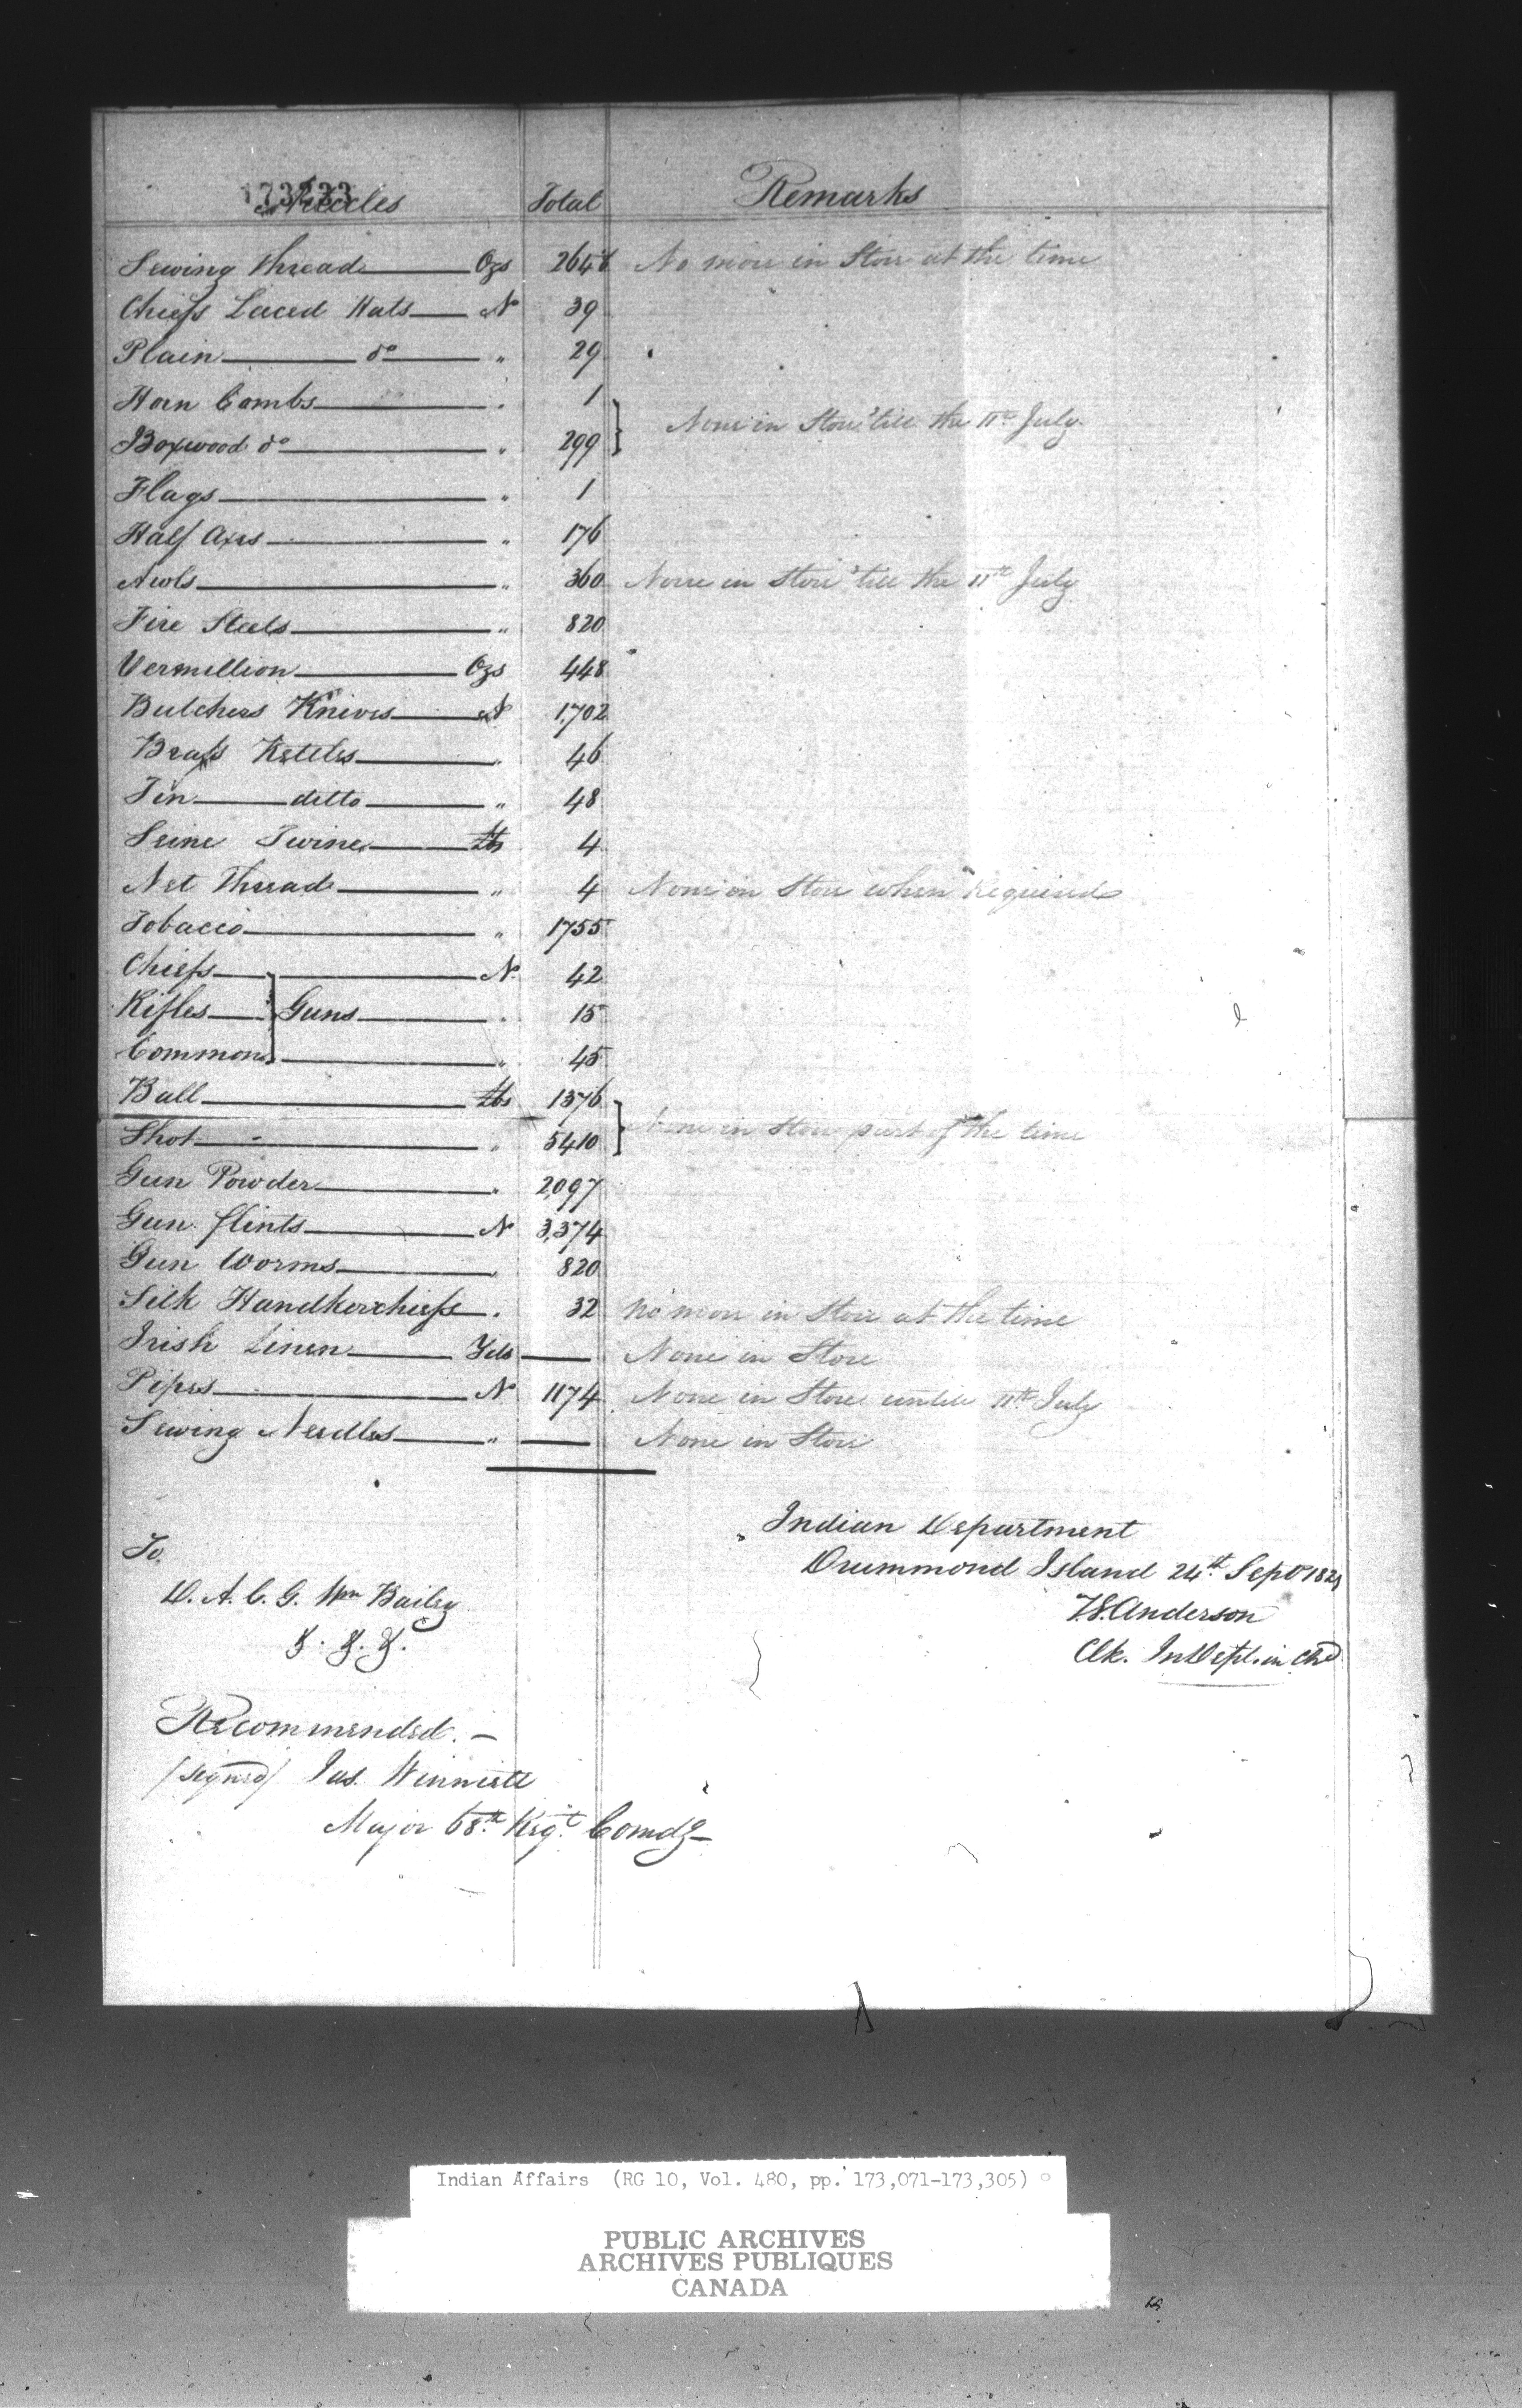 173233
Articles Total Remarks
Sewing Thread Ozs 2646 No more in Store at the time
Chiefs Laced Hats N 39
Plain do " 29
Horn Combs " 1
None in Store 'till the 11th July
Boxwood do " 299
Flags " 1
Half Axes " 176
Awls " 360 None in Store 'till the 11th July
Fire Steels " 820
Vermillion Ozs 448
Butchers Knives N 1,702
Brass Kettles " 46
Tin ditto " 48
Seine Twine lbs 4
Net Thread " 4 None in Store when Required
Tobacco " 1755
Chiefs N 42
Rifles Guns " 15
Common " 45
Ball lbs 1376
None in Store part of the time
Shot " 5410
Gun Powder " 2,097
Gun flints N 3,374
Gun Worms " 820
Silk Handkerchiefs " 32 No more in Store at the time
Irish Linen Yds — None in Store
Pipes N 1174 None in Store untill 11th July
Sewing Needles " — None in Store
Indian Department
Drummond Island 24th Sept
T.G. Anderson
Clk. In Dept. in Chd
To
D. A. C. G. Wm Bailey
&. &. &.
Recommended.—
(signed) Jas. Winniett
Major 68th Regt Comdg—
Indian Affairs (RG 10, Vol. 480, pp. 173,071-173,305)
PUBLIC ARCHIVES
ARCHIVES PUBLIQUES
CANADA